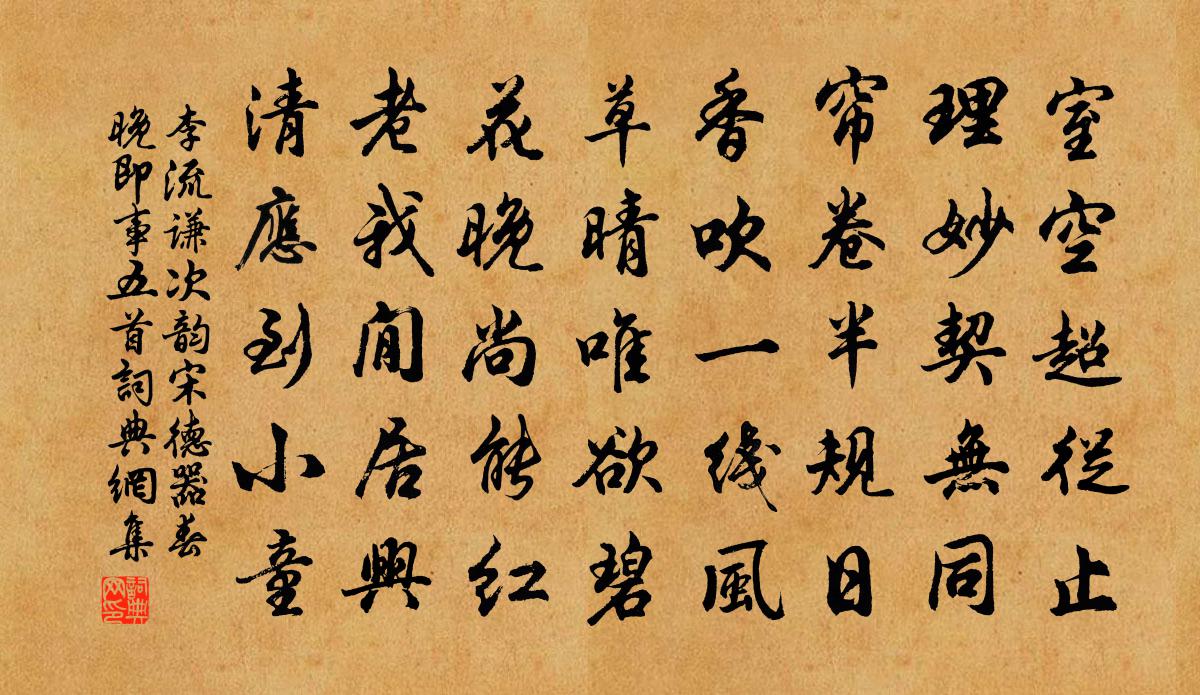 室空超從止
理妙契無同
帘卷半規日
香吹一线風
草晴唯欲碧
花晚尚能红
老我閒居興
清應到小童
李流谦次韵宋德器春
晚即事五首詞典網集
詞典
网印